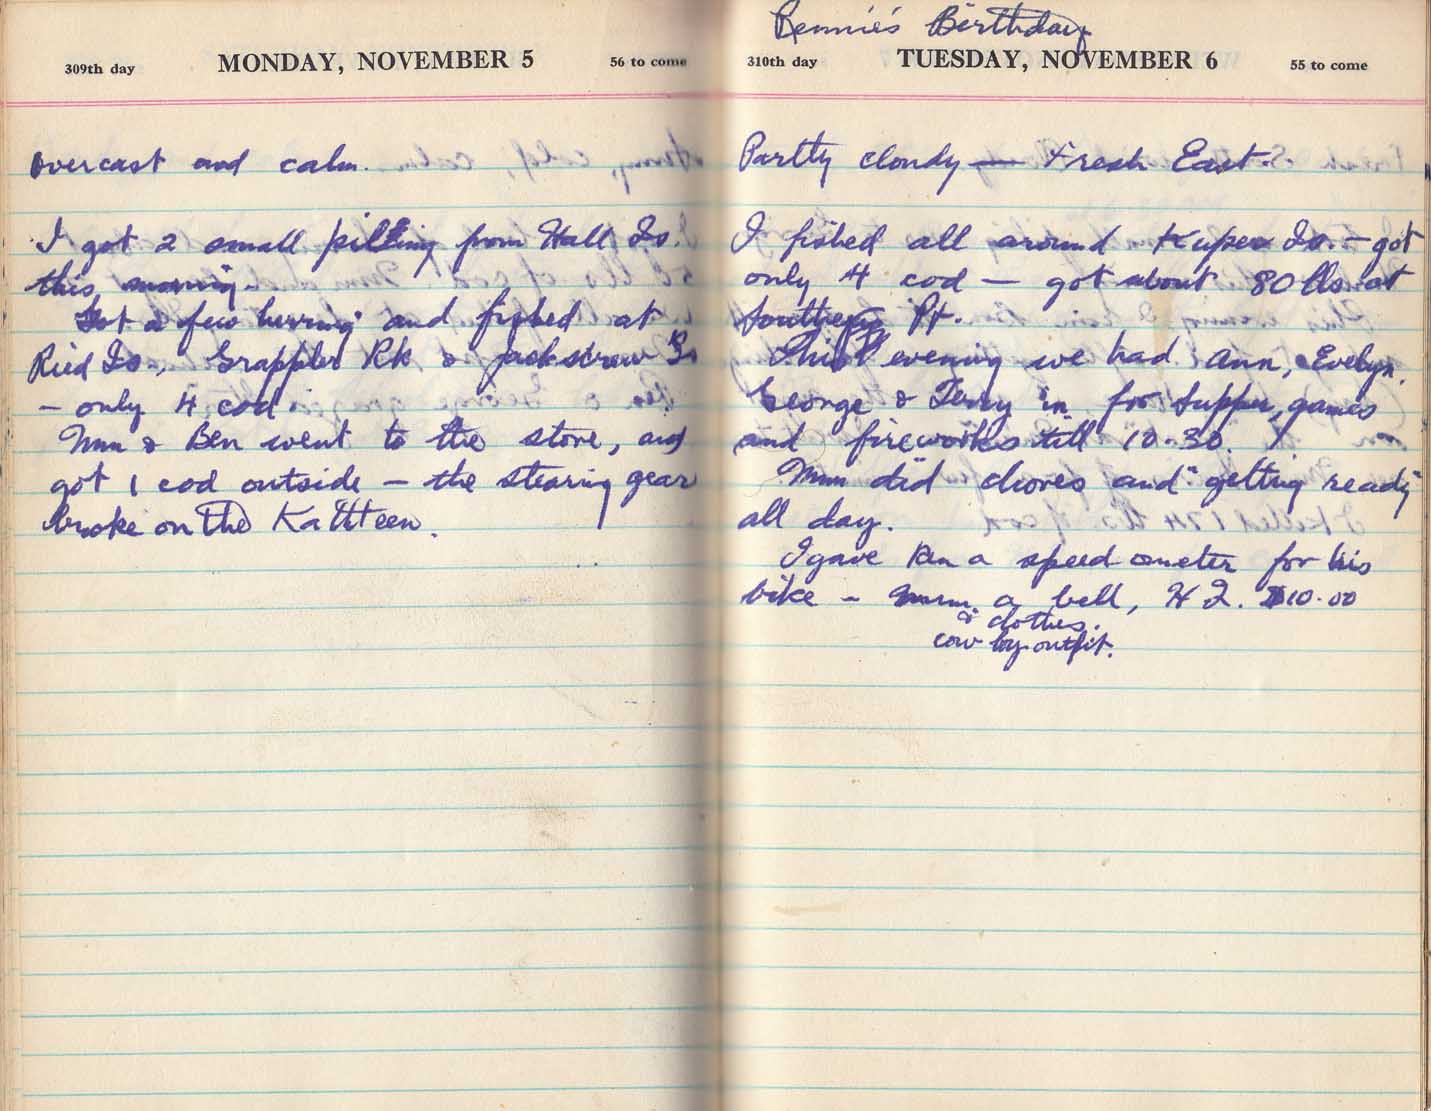 309th day MONDAY, NOVEMBER 5 56 to come
overcast and calm.
I got 2 small pilling from Hall Is.
this morning.
Got a few herring and fished at
Ried Is., Grappler Rk & Jackscrew Is
- only 4 cod.
Mum & Ben went to the store, and
got 1 cod outside - the stearing gear
broke on the Kathleen.
Bennie's Birthday
310th day TUESDAY, NOVEMBER 6 55 to come
Partly cloudy — Fresh East.
I fished all around Kuper Is. - got
only 4 cod — got about 80 lbs at
Southern Pt.
This evening we had Ann, Evelyn,
George & Terry in for supper, games
and fireworks till 10-30.
Mum did chores and getting ready
all day.
I gave Ben a speedometer for his
bike - Mum a bell, $10.00
& clothes.
cow boy outfit.